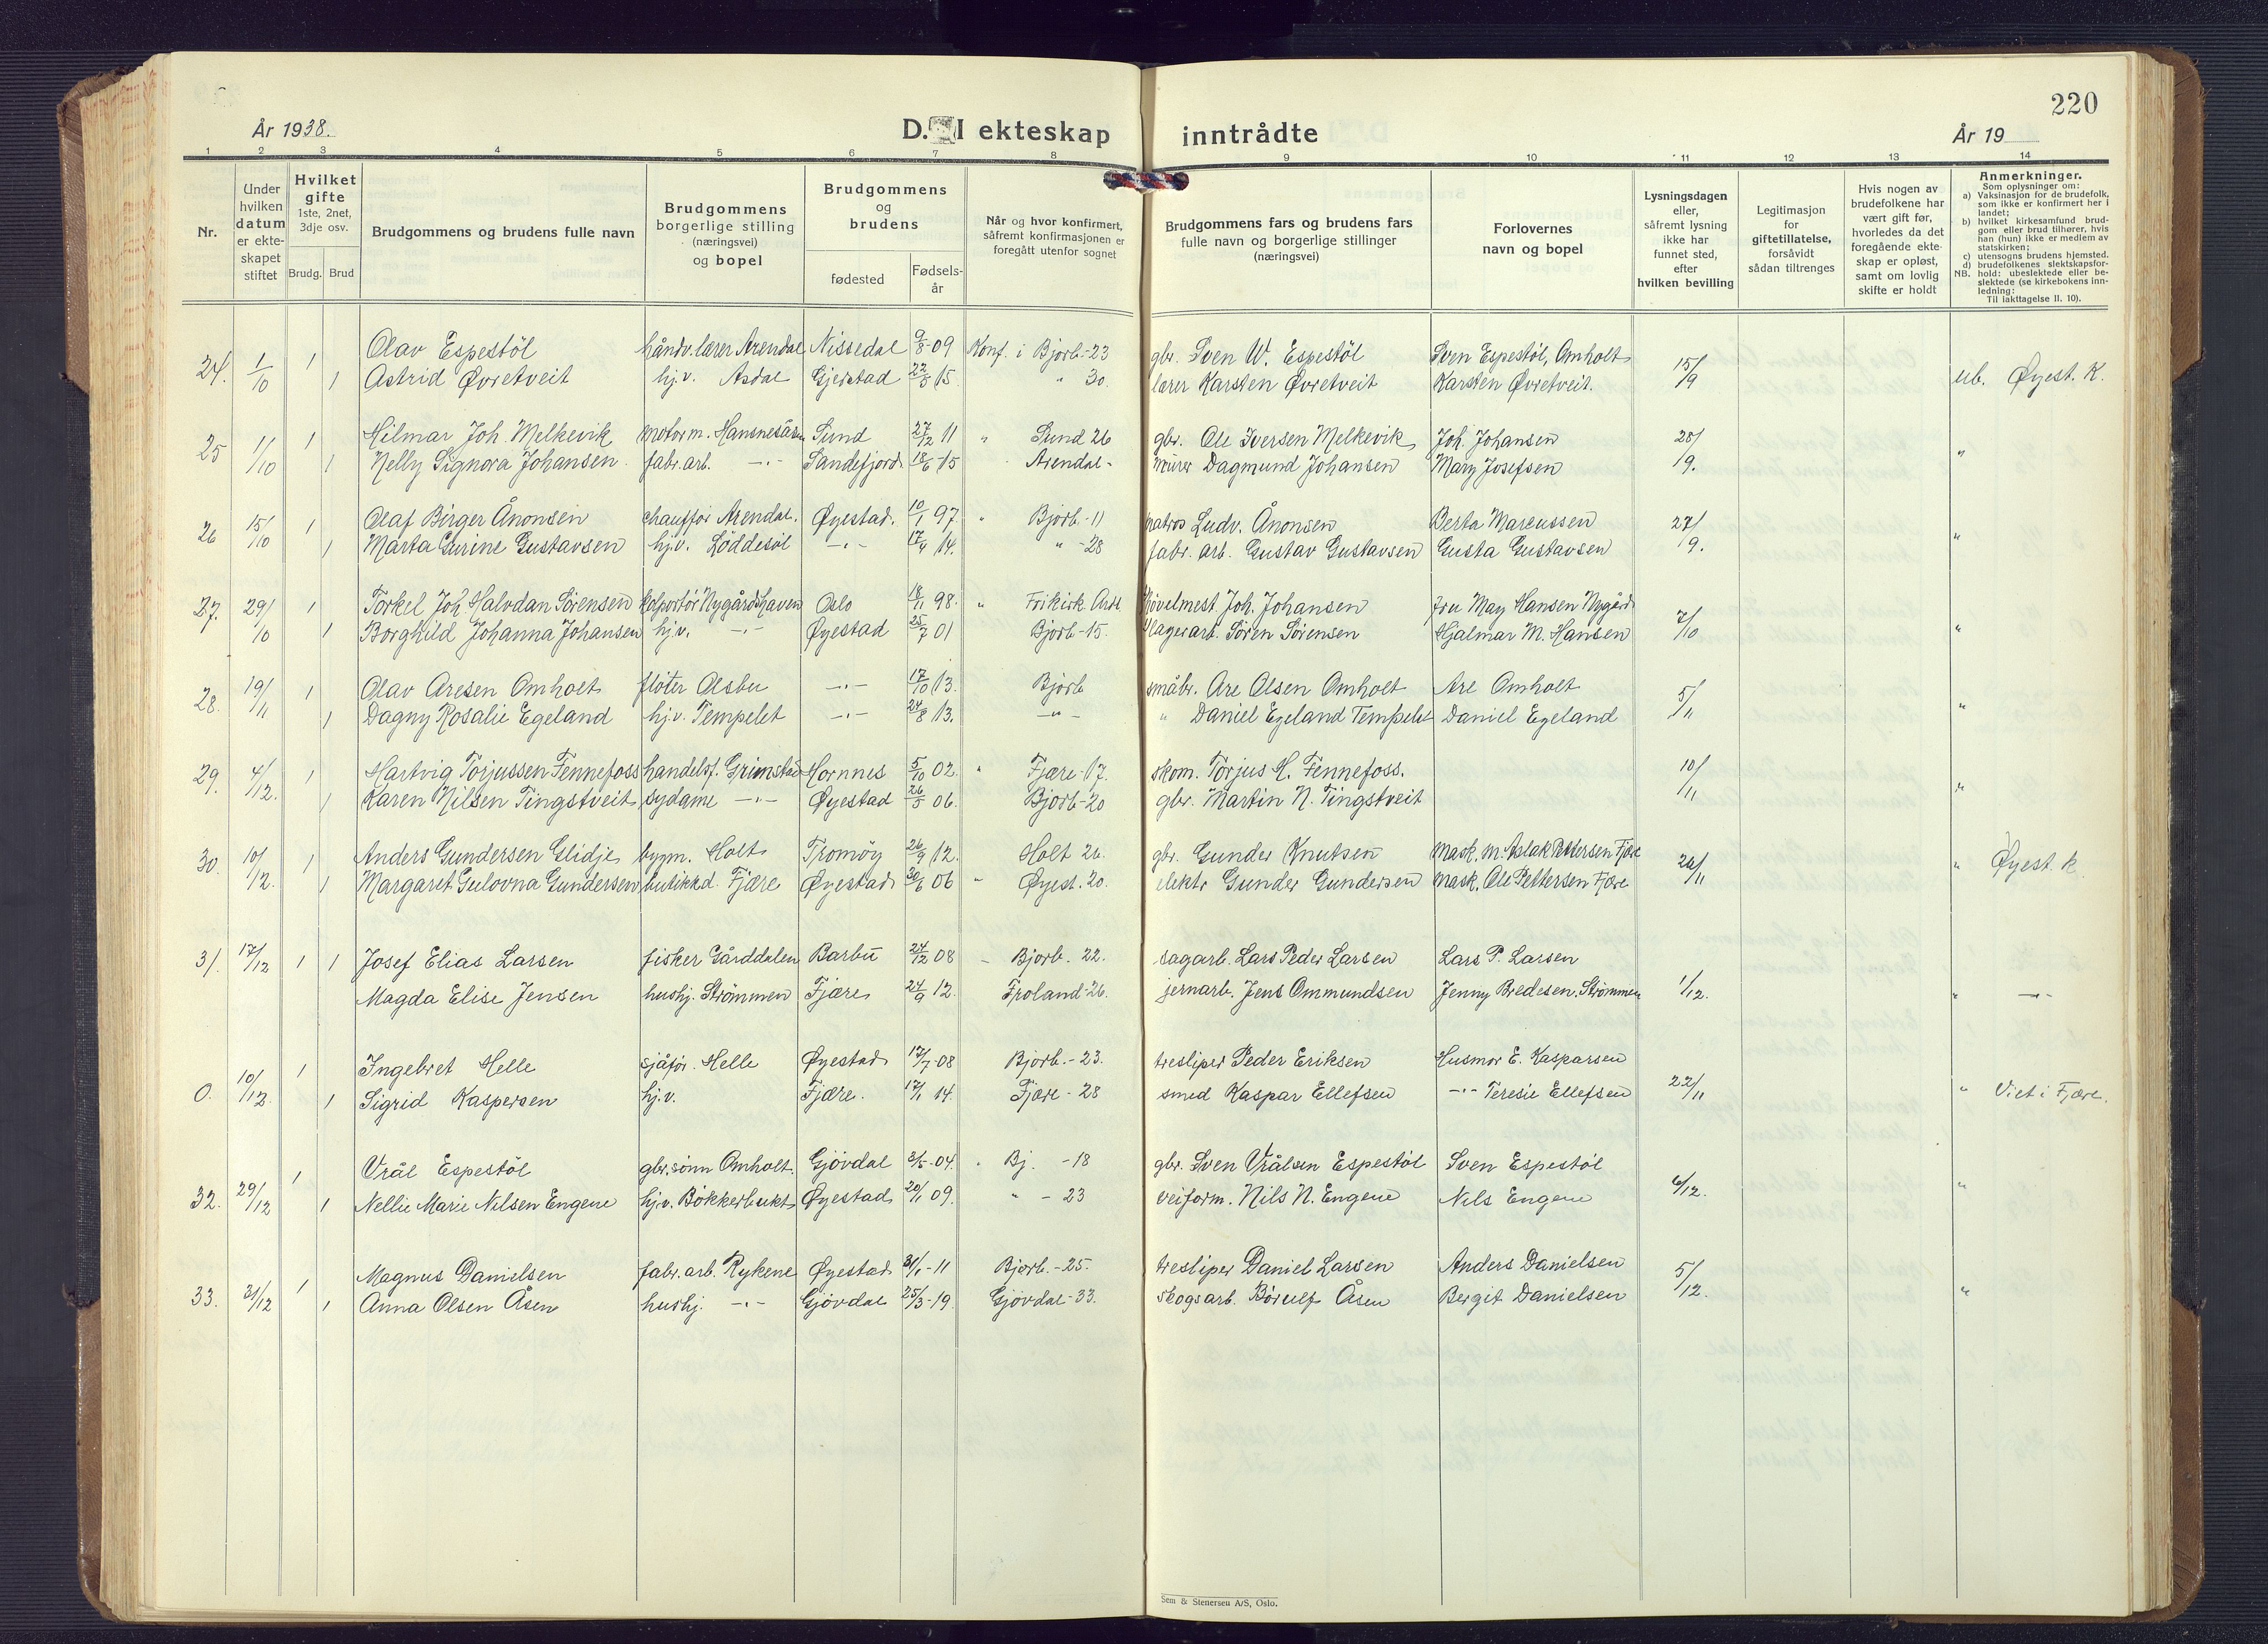 220
År 1938.
D. I ekteskap inntrådte
År 19
1 2 3 4 5 6 7 8 9 10 11 12 13 14
Nr.
Under hvilken datum er ekte-skapet stiftet
Hvilket gifte 1ste, 2net, 3dje osv.
Brudg. Brud
Brudgommens og brudens fulle navn
Brudgommens borgerlige stilling (næringsvei) og bopel
Brudgommens og brudens
fødested
Fødsels-år
Når og hvor konfirmert, såfremt konfirmasjonen er foregått utenfor sognet
Brudgommens fars og brudens fars fulle navn og borgerlige stillinger (næringsvei)
Forlovernes navn og bopel
Lysningsdagen eller, såfremt lysning ikke har funnet sted, efter hvilken bevilling
Legitimasjon for giftetillatelse, forsåvidt sådan tiltrenges
Hvis nogen av brudefolkene har vært gift før, hvorledes da det foregående ekte-skap er opløst, samt om lovlig skifte er holdt
Anmerkninger.
Som oplysninger om:
a) Vaksinasjon for de brudefolk, som ikke er konfirmert her i landet;
b) hvilket kirkesamfund brud-gom eller brud tilhører, hvis han (hun) ikke er medlem av statskirken;
c) utensogns brudens hjemsted.
d) brudefolkenes slektskapsfor-
NB. hold: ubeslektede eller be-slektede (se kirkebokens inn-ledning:
Til iakttagelse II. 10).
24. 1/10 1 Olav Espestöl håndv.lærer Arendal Nissedal 9/8-09 Konf. i Bjorb.-23 gbr. Sven W. Espestöl Sven Espestöl, Omholt 15/9 ub. Øyest. K.
1 Astrid Øvretveit hj.v. Asdal Gjerstad 22/8 15. " 30. lærer Karsten Øvretveit Karsten Øvretveit.
25 1/10 1 Hilmar Joh. Melkevik motorm. Sund 27/12 11 " Sund 26 gbr. Ole Iversen Melkevik Joh. Johansen 28/9. "
1 Nelly Signora Johansen fabr.arb. -"- Sandefjord 18/6-15 Arendal- murer Dagmund Johansen Mary Josefsen
26 15/10 1 Olaf Birger Ånonsen chauffør Arendal. Øyestad. 10/1 97. " Bjorb.-11 matros Ludv. Ånonsen Berta Marcussen 27/9. "
1 Marta Gurine Gustavsen hj.v. Løddesöl -"- 17/4 14. " -28 fabr. arb. Gustav Gustavsen Gusta Gustavsen
27. 29/10 1 Torkel Joh. Halvdan Sörensen kolportör Nygårdshaven Oslo 18/11 98. " Frikirk. Ardl. hövelmest. Joh. Johansen fru May Hansen Nygård 7/10 "
1 Borghild Johanna Johansen hj.v. -"- Øyestad 25/7 01 Bjorb-15. lagerarb. Sören Sörensen Hjalmar M. Hansen
28. 19/11 1 Olav Aresen Omholt fløter Olsbu -"- 17/10 13. Bjorb småbr. Are Olsen Omholt Are Omholt 5/11 "
1 Dagny Rosalie Egeland hj.v. Tempelet -"- 24/8 13. -"- " Daniel Egeland Tempelet Daniel Egeland
29. 4/12. 1 Hartvig Torjussen Fennefoss handelsf. Grimstad Hornnes 5/10 02. " Fjære-17. skom. Torjus H. Fennefoss. 10/11 "
1 Karen Nilsen Tingstveit sydame -"- Øyestad 26/5 06. Bjorb-20 gbr. Martin N. Tingstveit
30. 10/12. 1 Anders Gundersen Glidje bygm. Holt Tromøy 26/9 12. Holt 26. gbr. Gunder Knutsen Mask. m. Aslak Pettersen Fjære 24/11 " Øyest. k.
1 Margaret Gulovna Gundersen butikkd. Fjære Øyestad 30/6 06 " Øyest. 20. elektr Gunder Gundersen Mask. Ole Pettersen Fjære
31. 17/12 1 1 Josef Elias Larsen fisker Gårddalen Barbu 24/12 08 - Bjorb. 22. sagarb. Lars Peder Larsen Lars P. Larsen
Magda Elise Jensen hushj. Strömmen Fjære 24/9 12. Froland-26. jernarb. Jens Ommundsen Jenny Bredesen, Strömmen 1/12. " -"-
0. 10/12. 1 Ingebret Helle sjåför. Helle Øyestad 17/7-08 Bjorb.-23. tresliper Peder Eriksen Husmor E. Kasparsen 22/11 " Viet i Fjære.
1 Sigrid Kaspersen hj.v. Fjære. 17/1 14. Fjære-28 smed Kaspar Ellefsen -"- Teresie Ellefsen
32. 29/12 1 Vrål Espestöl gbr.sönn Omholt. Gjövdal 3/5-04. " Bj. -18 gbr. Sven Vrålsen Espestöl Sven Espestöl 6/12. "
1 Nellie Marie Nilsen Engene hj.v. Bökkerbukt Øyestad 20/1 09. " -23 veiform. Nils N. Engene Nils Engene
33. 31/12 1 Magnus Danielsen fabr.arb. Rykene Øyestad 31/1-11 Bjorb.-25. tresliper Daniel Larsen Anders Danielsen 5/12. "
1 Anna Olsen Åsen hushj. -"- Gjövdal 25/3-19. Gjövdal-33. skogsarb. Börulf Åsen Bergit Danielsen
Sem & Stenersen A/S, Oslo.